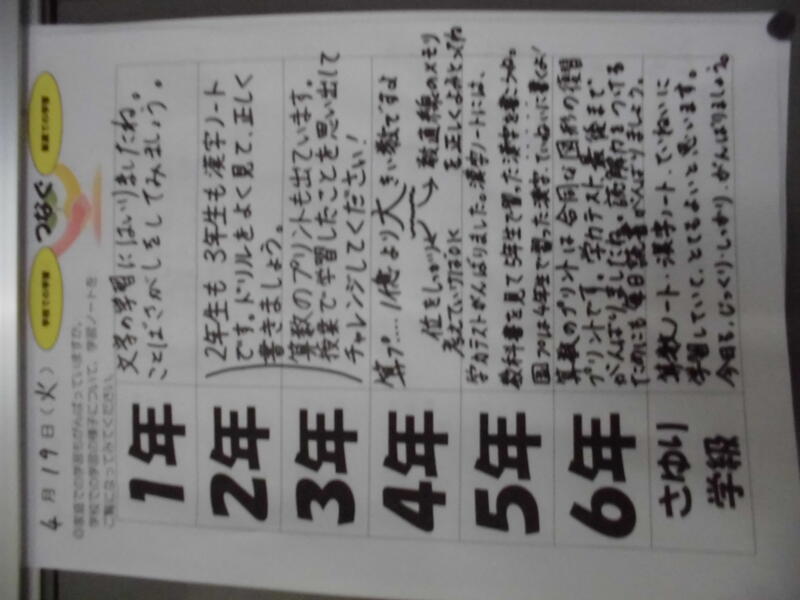 4月19日(火)
学校での学習
つなぐ
家庭での学習
の家庭での学習もがんばっていますか。
学校での学習の様子について、学習ノートを
ご覧になってみてください。
1年
文字の学習にはいりましたね。
ことばさがしをしてみましょう。
2年
2年生も3年生も漢字ノート
です。ドリルをよく見て、正しく
書きましょう。
3年
算数のプリントも出ています。
授業で学習したことを思い出して
チャレンジしてください!
4年
算プ……1億より大きい数ですね
位をしっかり
考えていけばOK
数直線のメモリ
を正しくよみとってね
5年
学力テストがんばりました。漢字ノートには、
教科書を見て5年生で習った漢字を書こうね。
国プは4年生で習った漢字、ていねいに書くよ!
6年
算数のプリントは合同な図形の復習
プリントです。学力テスト、最後まで
がんばりましたね。読解力をつける
ためにも毎日読書がんばりましょう。
さゆり
学級
算数ノート・漢字ノート、ていねいに
学習していて、とてもよいと思います。
今日も、じっくり・しっかり・がんばりましょう。